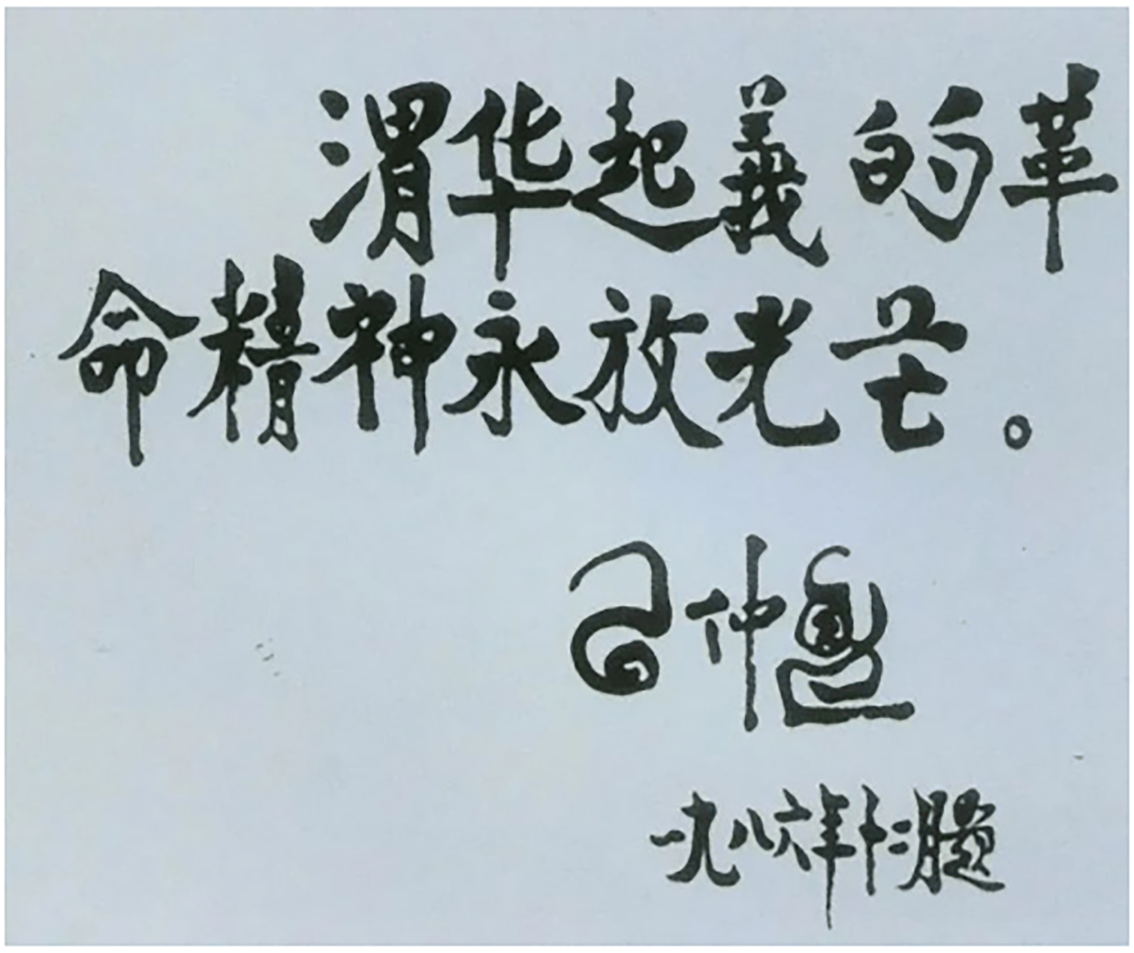 渭华起義的革
命精神永放光芒。
习仲勋
一九八六年十二月题